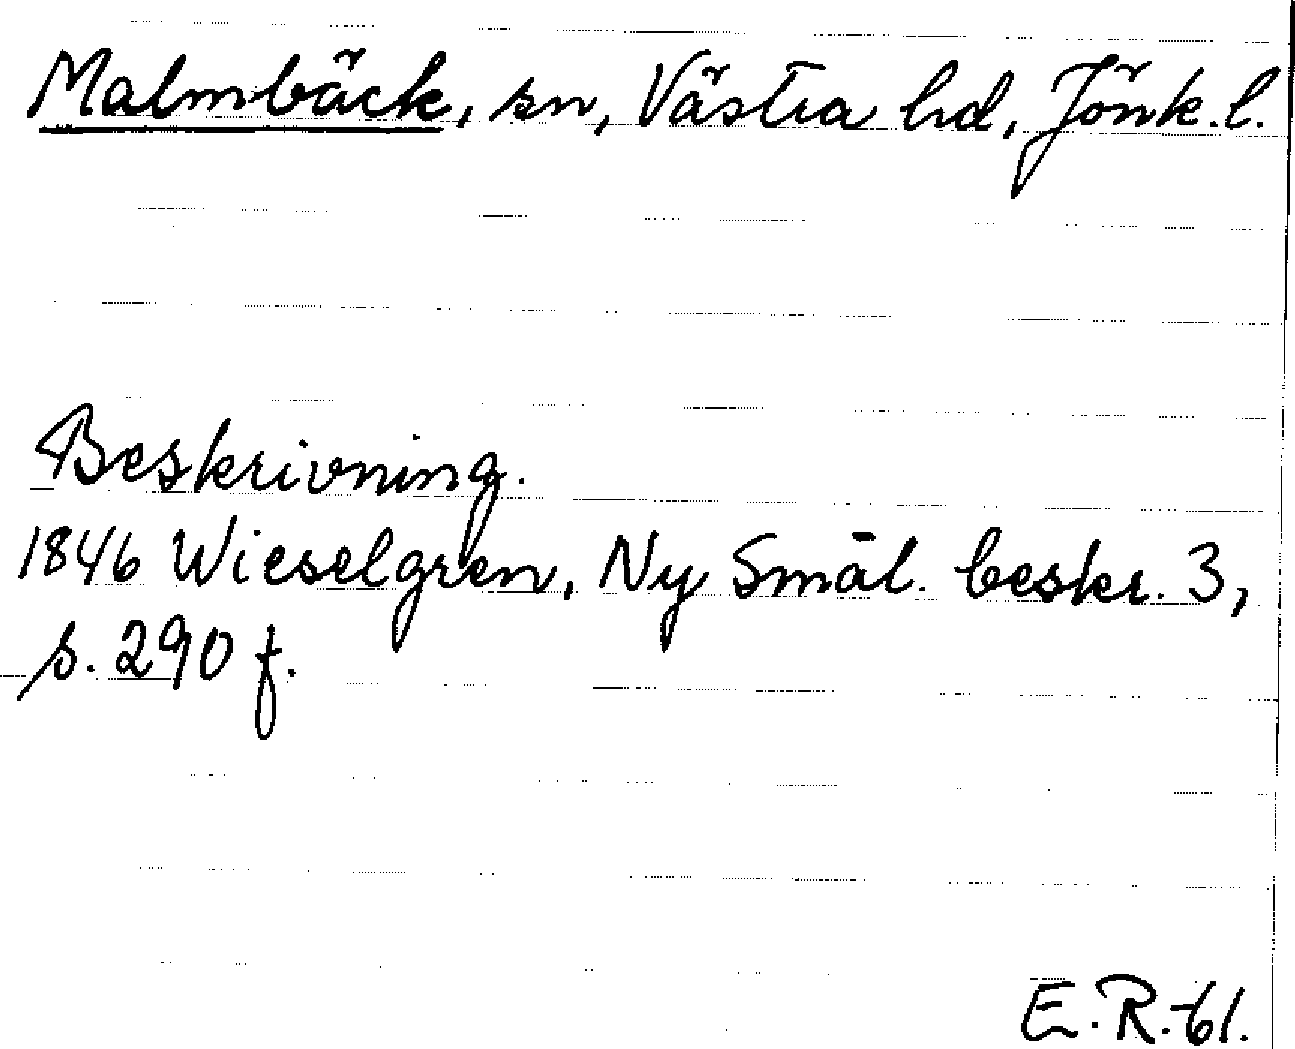 Malmbäck, sn, Västra hd, Jönk. l.
Beskrivning.
1846 Wieselgren, Ny Smål. beskr. 3,
s. 290 f.
E.R.-61.